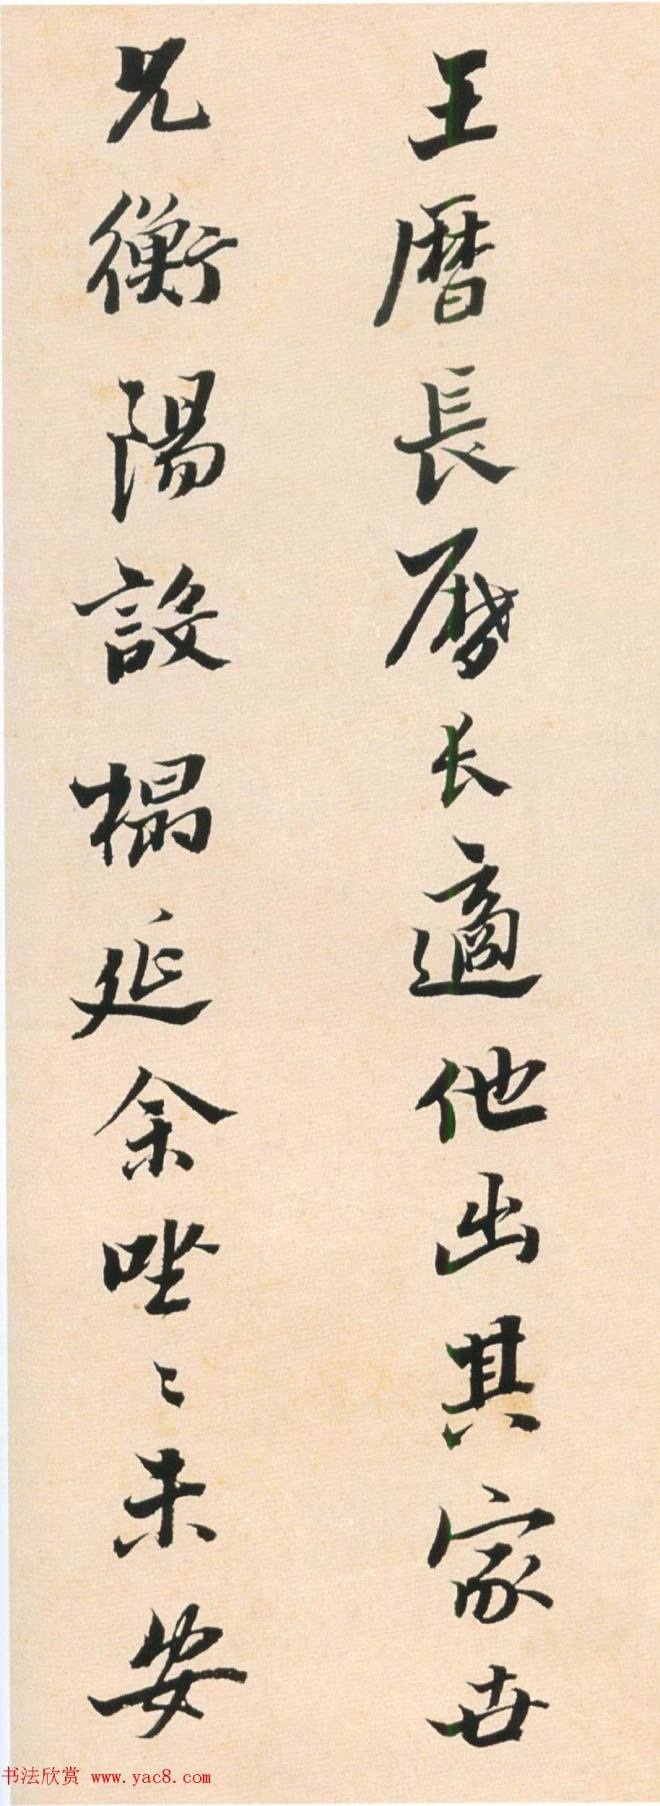 王曆長曆长適他出其家世
兄衡陽設榻延余唑〻未安
书法欣赏 www.yac8.com